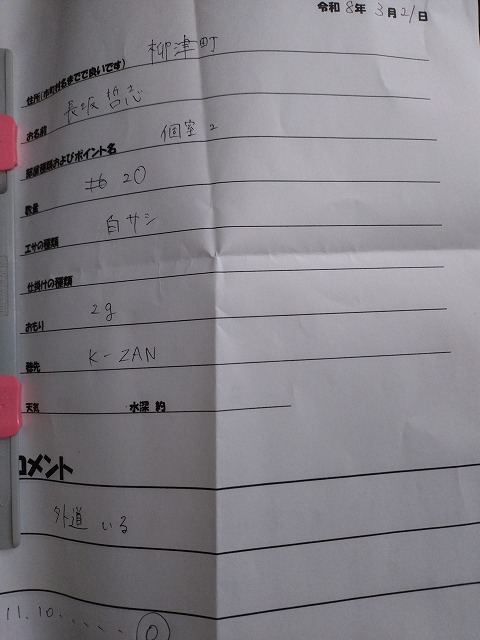 令和 8年 3月 21日
住所(市町村名までで良いです) 柳津町
お名前 長坂 哲志
部屋種類およびポイント名 個室 2
数量 #6 20
エサの種類 白サシ
仕掛けの種類
おもり 2g
穂先 K-ZAN
天気 水深 約
コメント
外道 いる
11.10..... 0